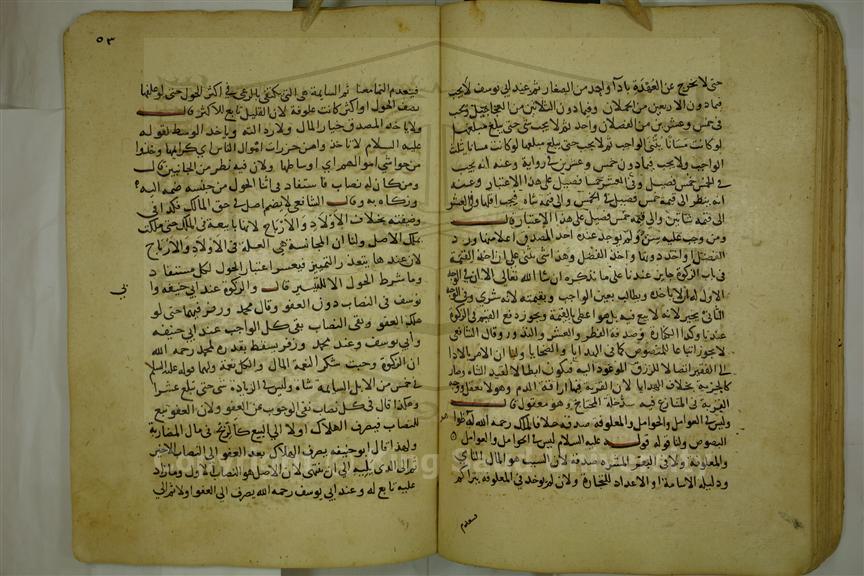 حتى لا يخرج عن العهدة باداء واحد من الصغار ثم عند ابي يوسف لا يجب
فيما دون الاربعين من الحملان وفيما دون الثلاثين من العجاجيل ويجب
في خمس وعشرين من الفصلان واحد ثم لا يجب شي حتى يبلغ مبلغا
لو كانت مسانا يثنى الواجب ثم لا يجب حتى يبلغ مبلغا لو كانت مسانا يثلث
الواجب ولا يجب فيما دون خمس وعشرين في رواية وعنه انه يجب
في الخمس خمس فصيل وفي العشر خمسا فصيل على هذا الاعتبار وعنه
انه ينظر الى قيمة خمس فصيل في الخمس والى قيمة شاة فيجب اقلهما وفي العشر
الى قيمة شاتين والى قيمة خمسي فصيل على هذا الاعتبار قال
ومن وجب عليه سن ولم يوجد عنده اخذ المصدق اعلا منها ورد
الفضل او اخذ دونها واخذ الفضل وهذا يبتني على ان اخذ القيمة
في باب الزكوة جايز عندنا على ما نذكره ان شا الله تعالى الا ان في الوجه
الاول له ان لا ياخذ ويطالب بعين الواجب او بقيمته لانه شرى وفي الوجه
الثاني يجبر لانه لا بيع فيه بل هو اعطى بالقيمة ويجوز دفع القيم في الزكوة
عندنا وكذا الكفارة وصدقة الفطر والعشر والنذور وقال الشافعي
لا يجوز اتباعا للمنصوص كما في الهدايا والضحايا ولنا ان الامر بالاداء
الى الفقير ايصالا للرزق الموعود اليه فيكون ابطالا لقيد الشاة وصار
كالجزية بخلاف الهدايا لان القربة فيها اراقة الدم وهو لا يعقل ووجه
القربة في المتنازع فيه سد خلة المحتاج وهو معقول قال
وليس في العوامل والحوامل والمعلوفة صدقة خلافا لملك رحمه الله له ظواهر
النصوص ولنا قوله عليه السلام ليس في الحوامل والعوامل
والمعلوفة ولا في البقر المثيرة صدقة لان السبب هو المال النامي
ودليله الاسامة او الاعداد للتجارة ولان لم يوجد في المعلوفة يتراكم
٥٣
فينعدم النما معنا ثم السايمة هي التي تكتفي بالرعي في اكثر الحول حتى لو علفها
نصف الحول او اكثر كانت علوفة لان القليل تابع للاكثر قال
ولا ياخذ المصدق خيار المال ولا رذالته وياخذ الوسط لقوله
عليه السلام لا تاخذوا من حزرات اموال الناس اي كرايمها وخذوا
من حواشي اموالهم اي اوساطها ولان فيه نظر من الجانبين قال
ومن كان له نصاب فاستفاد في اثنا الحول من جنسه ضمه اليه
وزكاه به وقال الشافعي لا يضم لانه اصل في حق الملك فكذا في
وضيفته بخلاف الاولاد والارباح لانها تابعة في الملك حتى ملكت
بملك الاصل ولنا ان المجانسة هي العلة في الاولاد والارباح
لان عندها يتعذر التمييز فيعسر اعتبار الحول لكل مستفاد
وما شرط الحول الا للتيسير قال والزكوة عند ابي حنيفة وابي
يوسف في النصاب دون العفو وقال محمد وزفر فيهما حتى لو
هلك العفو وبقي النصاب بقى كل الواجب عند ابي حنيفة
وابي يوسف وعند محمد وزفر يسقط بقدره لمحمد رحمه الله
ان الزكوة وجبت شكر النعمة المال والكل نعمة ولهما قوله عليه السلام
في خمس من الابل السايمة شاة وليس في الزيادة شي حتى تبلغ عشرا
وهكذا قال في كل نصاب نفى الوجوب عن العفو ولان العفو تبع
للنصاب فيصرف الهلاك اولا الى التبع كالربح في مال المضاربة
ولهذا قال ابو حنيفة يصرف الهلاك بعد العفو الى النصاب الاخير
ثم الى الذي يليه الى ان ينتهي لان الاصل هو النصاب الاول وما زاد
عليه تابع له وعند ابي يوسف رحمه الله يصرف الى العفو اولا ثم الى